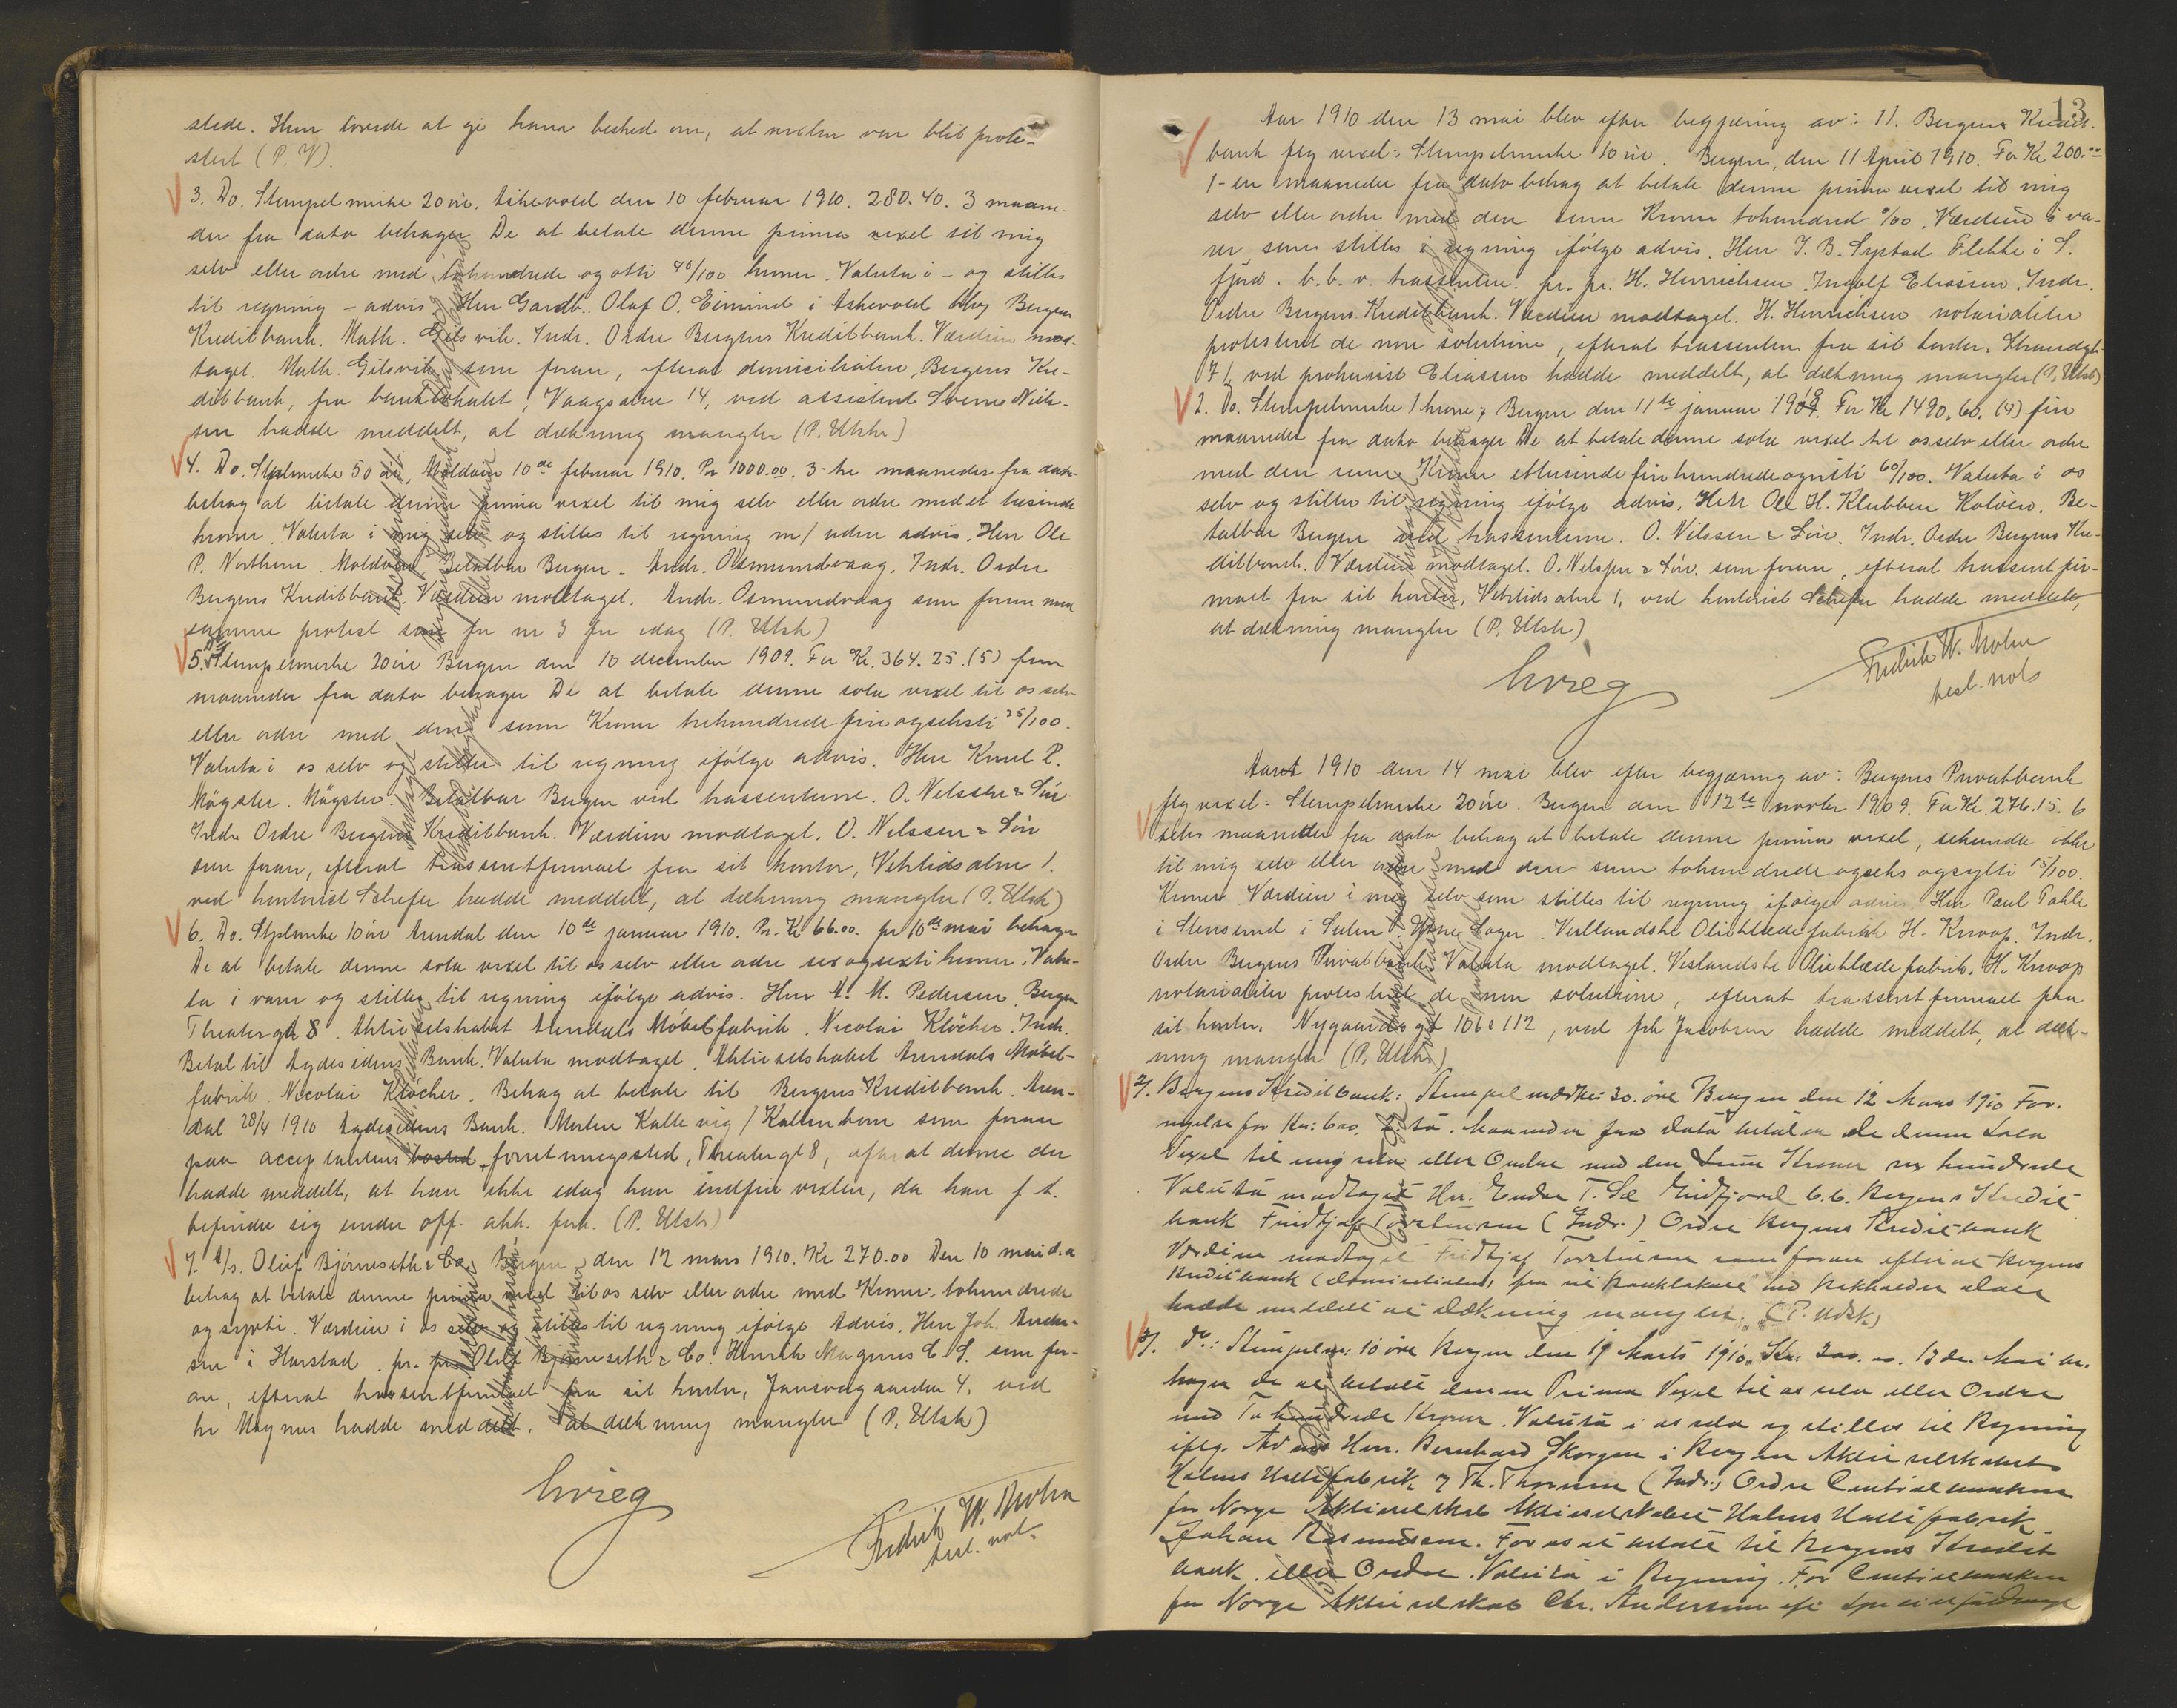 stede. Hun lovede at gi ham besked om, at vexlen var blit prote-
stert (P. V).
3. Do. Stempelmerke 20 øre. Askevold den 10 februar 1910. 280.40. 3 maane-
der fra dato behager De at betale denne prima vexel til mig
selv eller ordre med tohundrede og otti 40/100 kroner. Valuta i - og stilles
til regning - advis Herr Gardb. Olaf O. Eimind i Askevold Bergens
Kreditbank. Math. Gilsvik. Indr. Ordre Bergens Kreditbank. Værdien mod-
taget. Math. Gilsvik som foran, efterat domiciliaten, Bergens Kre-
ditbank, fra banklokalet, Vaagsalm 14, ved assistent Sverre Niels-
sen hadde meddelt, at dækning mangler (P. Utsk.)
4. Do. Stplmerke 50 øre, Moldøen 10de februar 1910. Pr 1000.00. 3-tre maaneder fra dato
behag at betale denne prima vexel til mig selv eller ordre med et tusinde
kroner. Valuta i mig selv og stilles til regning m/ uden advis. Herr Ole
P. Northun. Moldøen. Betalbar Bergen. Andr. Osmundvaag. Indr. Ordre
Bergens Kreditbank. Værdien modtaget. Andr. Osmundvaag som foran
samme protest som for nr 3 for idag (P. Utsk)
5. Do Stempelmerke 20 øre Bergen den 10 december 1909. For Kr. 364.25. (5) fem
maaneder fra dato behager De at betale denne sola vexel til os selv
eller ordre med den sum Kroner trehundrede fire og seksti 25/100.
Valuta i os selv og stilles til regning ifølge advis. Herr Knut P.
Møgster. Møgster. Betalbar Bergen ved trassenterne. O. Nilssen & Søn
Indr. Ordre Bergens Kreditbank. Værdien modtaget. O. Nilssen & Søn
som foran, efterat trassentfirmaet fra sit kontor, Vetrlidsalm 1.
ved kontorist Schefer hadde meddelt, at dækning mangler (P. Utsk)
6. Do. Stplmerke 10 øre Arendal den 10de januar 1910. Pr. Kr 66.00. pr 10de mai behager
De at betale denne sola vexel til os selv eller ordre sex og sexti kroner. Valu-
ta i varer og stilles til regning ifølge advis. Herr A. M. Pedersen, Bergen
Theatergt 8. Aktieselskabet Arendals Møbelfabrik. Nicolai Klöcher. Indr.
Betal til Tydesidens Bank. Valuta modtaget. Aktieselskabet Arendals Møbel-
fabrik. Nicolai Klöcher. Behag at betale til Bergens Kreditbank. Aren-
dal 28/4 1910 Bank. Morten Kallevig / som foran
paa acceptantens bosted forretningssted, Theatergt 8, efterat denne der
hadde meddelt, at han ikke idag kan indfri vexlen, da han f. t.
befinder sig under off. akk. forh. (P. Utsk)
7. A/s. Olaf Bjørneseth & Co. Bergen den 12 mars 1910. Kr 270.00 Den 10 mai d.a
behag at betale denne prima vexel til os selv eller ordre med Kroner: tohundrede
og sytti. Værdien i os selv og stilles til regning ifølge Advis. Herr Joh. Ander-
sen i Harstad. pr. pr. Olaf Bjørneseth & Co. Henrik Magnus C. S. som for-
an, efterat trassentfirmaet fra sit kontor, Jansvaagaarden 4, ved
hr Magnus hadde meddelt, at dækning mangler (P. Utsk)
Fredrik W. Mohn
best. not.
13
Aar 1910 den 13 mai blev efter begjæring av: 1). Bergens Kredit-
bank flg vexel: Stempelmerke 10 øre. Bergen, den 11 April 1910. For Kr 200.00
1-en maaneder fra dato behag at betale denne prima vexel til mig
selv eller ordre med den sum Kroner tohundred 0/00. Værdien i va-
rer som stilles i regning ifølge advis. Herr J. B. Systad Flekke i S.
fjord. b. b. v. trassenten. pr. pr. H. Henrichsen. Ingolf Eliassen. Indr.
Ordre Bergens Kreditbank. Værdien modtaget. H. Henrichsen notarialiter
protestert de non solutione, efterat trassenten fra sit kontor, Strandgt
71, ved prokurist Eliassen hadde meddelt, at dækning mangler (P. Utsk)
2. Do. Stempelmerke 1 krone, Bergen den 11te januar 1910. For Kr 1490.60. (4) fire
maaneder fra dato behager De at betale denne sola vexel til os selv eller ordre
med den sum Kroner ettusinde firehundrede og niti 60/100. Valuta i os
selv og stilles til regning ifølge advis. Herr Ole H. Klubben Kalvåen. Be-
talbar Bergen ved trassenterne. O. Nilssen & Søn. Indr. Ordre Bergens Kre-
ditbank. Værdien modtaget. O. Nilssen & Søn. som foran, efterat trassentfir-
maet fra sit kontor, Vetrlidsalm 1, ved kontorist Schefer hadde meddelt,
at dækning mangler (P. Utsk)
Fredrik W. Mohn
best. not.
Aaret 1910 den 14 mai blev efter begjæring av: Bergens Privatbank
flg vexel: Stempelmerke 20 øre. Bergen den 12te novbr 1909. For Kr. 276.15. 6
seks maaneder fra dato behag at betale denne prima vexel, sekunda ikke
til mig selv eller ordre med den sum tohundrede og seks og sytti 15/100.
Kroner. Værdien i mig selv som stilles til regning ifølge advis Herr Paul Pahle
i Stensund i Sulen. Vestlandske Olieklædefabrik H. Knoop. Indr.
Ordre Bergens Privatbank. Valuta modtaget. Vestlandske Olieklædefabrik. H. Knoop
notarialiter protestert de non solutione, efterat trassentfirmaet fra
sit kontor, Nygaardsgt 106 & 112, ved frk Jacobsen hadde meddelt, at dæk-
ning mangler (P. Utsk)
2. Bergens Kreditbank: Stempelmærke: 30. øre Bergen den 12 Mars 1910 For-
nyelse for Kr: 600. 2 to. Maaneder fra Dato betaler de denne Sola
Vexel til mig selv eller Ordre med den Sum Kroner sex hundrede
Valuta modtaget Hr. Endre T. Sæ Eidfjord b.b. Bergens Kredit
bank Fridtjof Torsteinsen (Indr.) Ordre Bergens Kreditbank
Værdien modtaget Fridtjof Torsteinsen som foran efterat Bergens
Kreditbank (domiciliaten) fra sit Banklokale ved Bokholder
hadde meddelt at dækning mangler. (P. Udsk)
3. do.: Stempelm: 10 øre Bergen den 19 Marts 1910. Kr: 200. 00. 13 de. Mai be-
hager de at betale denne Prima Vexel til os selv eller Ordre
med To hundrede Kroner. Valuta i os selv og stilles til Regning
iflg. Advis Herr. Bernhard Skorgen i Bergen Aktieselskabet
Holms Uldfabrik Th. Thorsen (Indr.) Ordre Centralbanken
for Norge Aktieselskab Aktieselskabet Holms Uldfabrik
Johan Rasmussen. For os at betale til Bergens Kredit
bank eller Ordre. Valuta i Regning. For Centralbanken
for Norge Aktieselskab Chr. Andersen